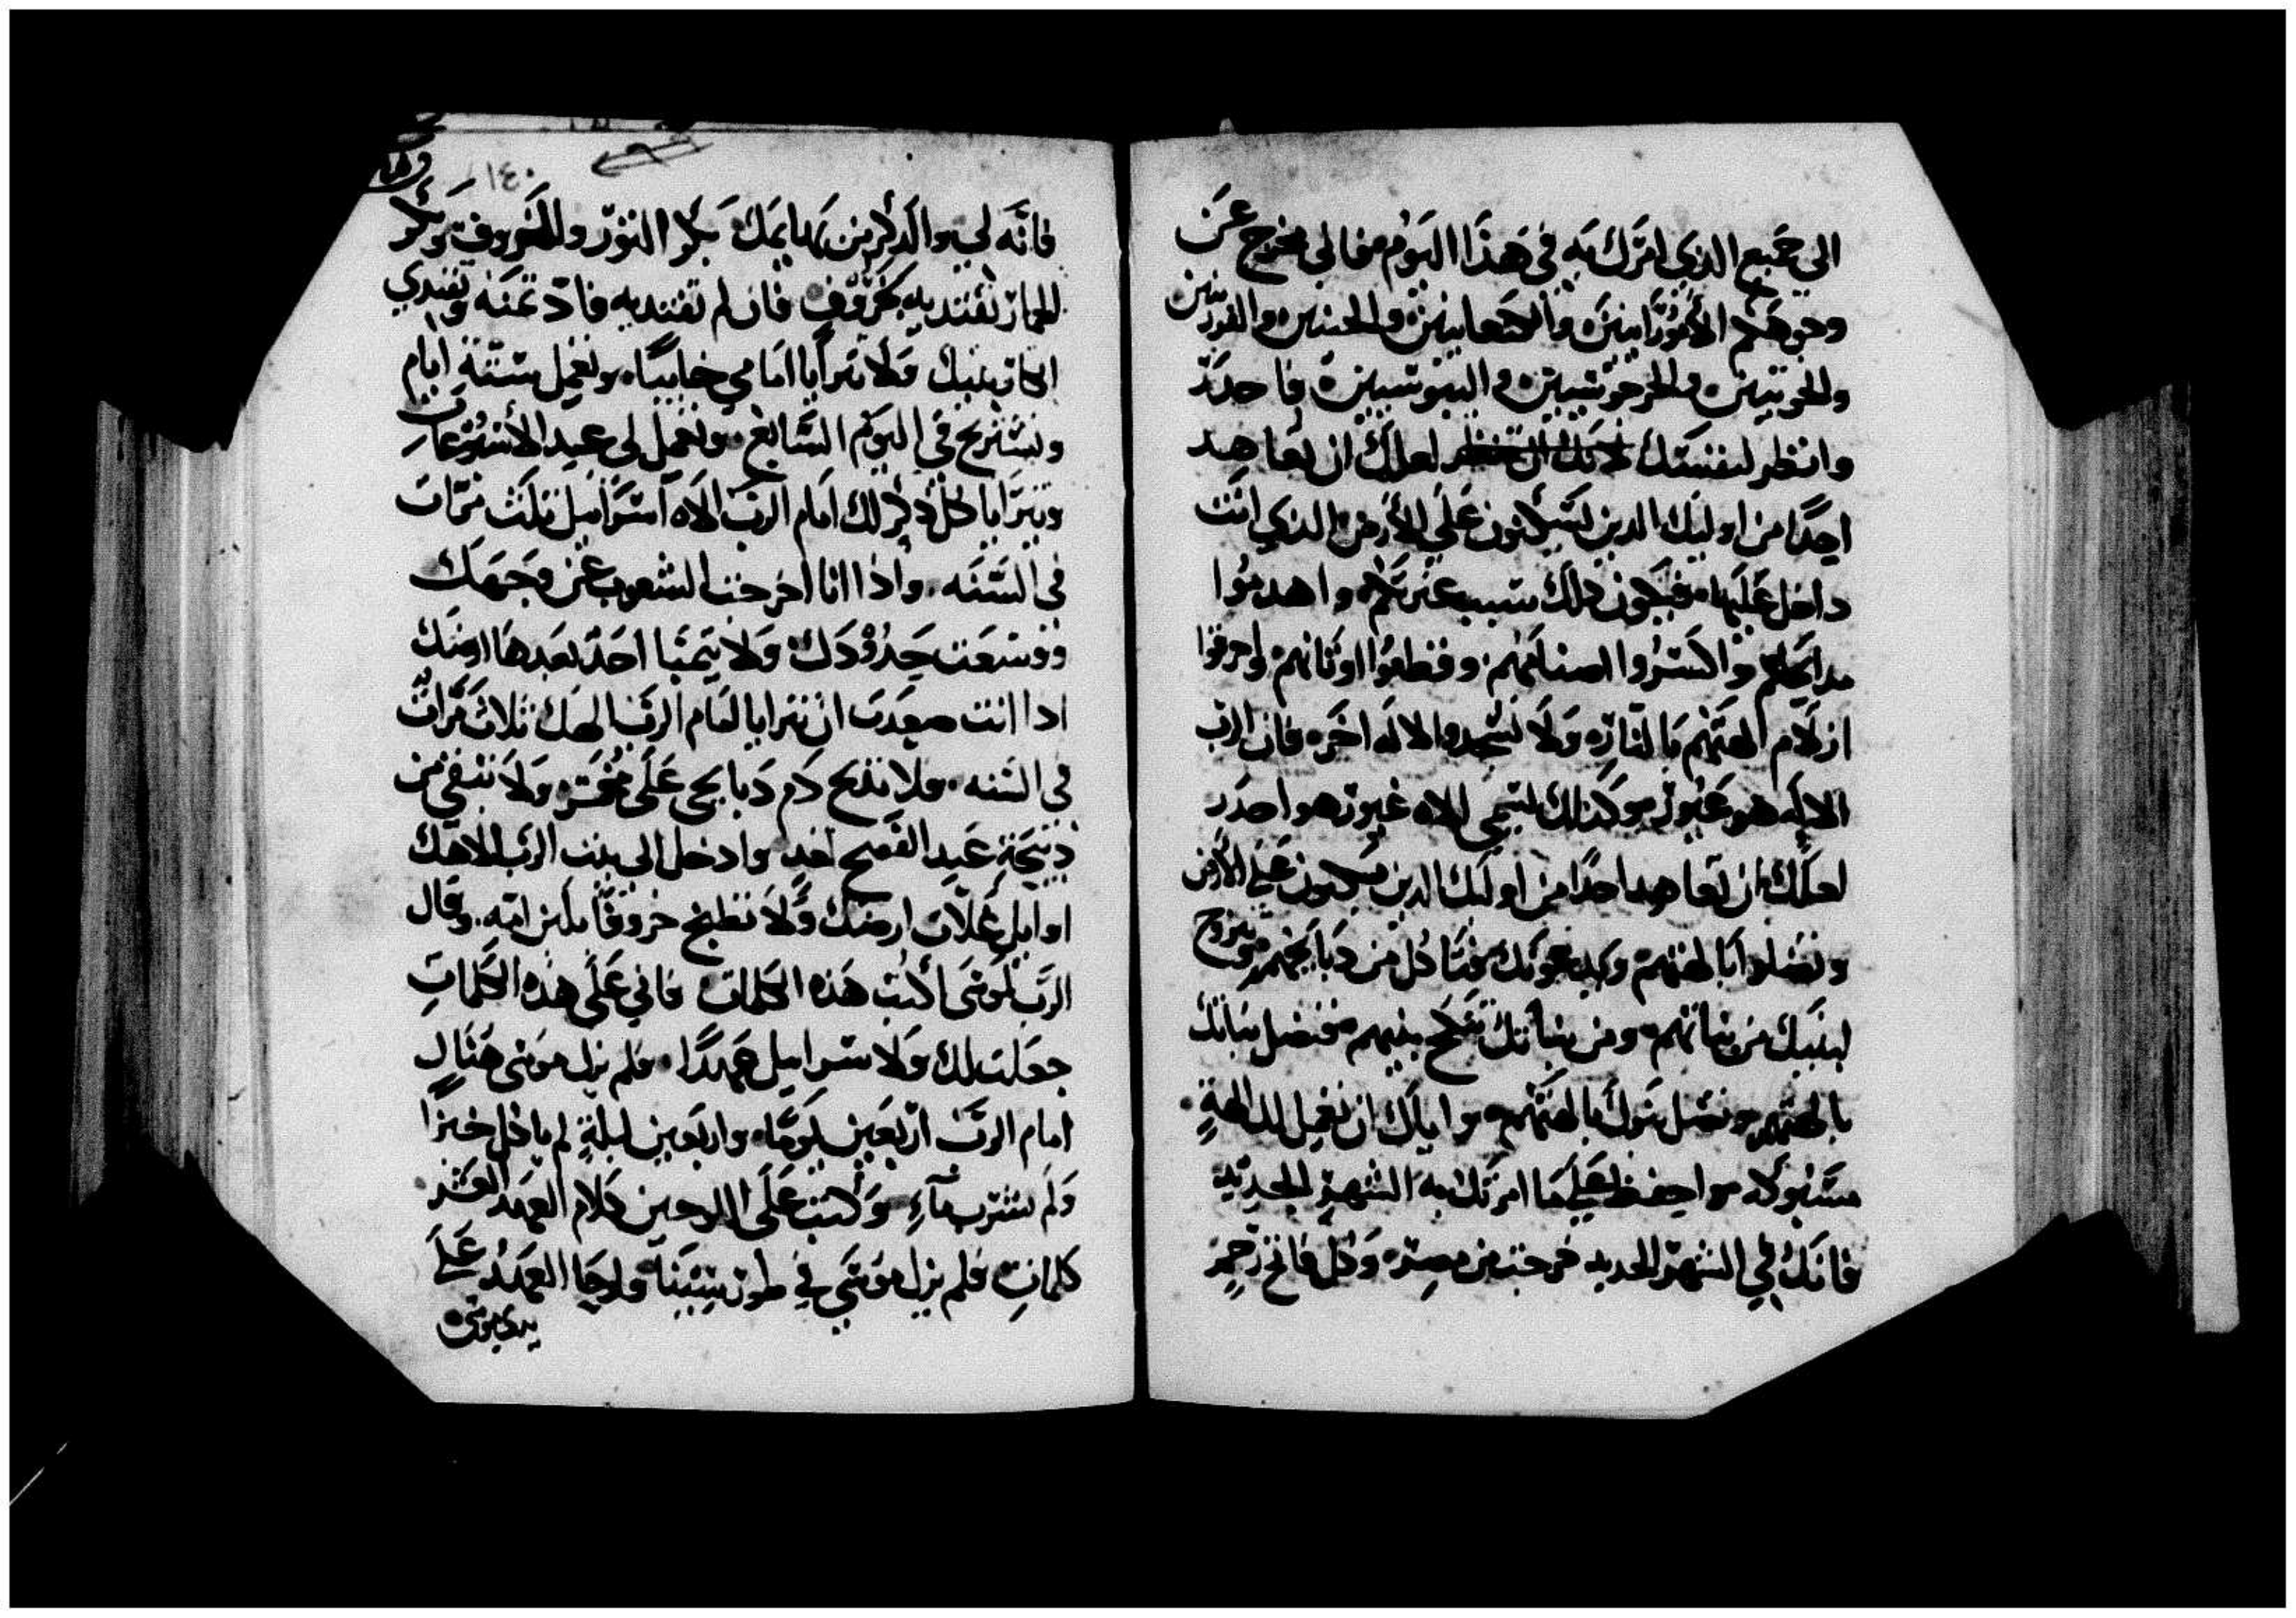 الي جميع الذي امرك به في هذا اليوم فاني مخرج عن
وجوهكم الأموُرَّانيين والكنعانيين والحتيين والفرزيين
والحويين والجرجوسيين واليبوسيين فاحدر
وانظر لنفستك لعلك ان تعاهد
احدًا من اوليك الدين يسكنون علي الأرض الذي انت
داخل عليها فيكون ذلك سبب عترتكم واهدموا
مدابحهم واكسروا اصنامهم وقطعوا اوثانهم واحرقوا
ازلام الهتهم بالنار ولا تسجدوا لاله اخر فان الرب
الاله هو غيور وكذلك يسمي الاه غيور هو احدر
لعلك ان تعاهد احدًا من اوليك الدين يسكنون علي الأرض
وتضلوا بالهتهم ويدعونك فتاكل من دبايحهم وتزوج
لبنيك من بناتهم ومن بناتك تنكح بنيهم فتضل بناتك
بالهتهم وتضل بنوك بالهتهم واياك ان تعمل لك الهة
مسبوكه واحفظ علي ما امرتك به الشهر الجديد
فانك في الشهر الجديد خرجت من مصر وكل فاتح رحم
١٤٠
فانه لي والدكر من بهايمك بكر التور والخروف وبكر
الحمار تفتديه بخروف فان لم تفتديه فاد تمنه وتفتدي
ابكار بنيك ولا تترايا امامي خايبًا وتعمل ستة ايام
وتستريح في اليوم السابع وتعمل لي عيد الأسبوعات
ويترايا كل دكر لك امام الرب الاه اسراييل تلت مرات
في السنه واذا انا اخرجت الشعوب عن وجهك
ووسعت حدودك ولا يتمنا احد بعدها ارضك
ادا انت صعدت ان تترايا امام الرب الهك تلات مرات
في السنه ولا تذبح دم دبايحي علي مختمر ولا تبقي من
ذبيحة عيد الفصح لغد وادخل الي بيت الرب الاهك
اوايل غلات ارضك ولا تطبخ خروفًا بلبن امه وقال
الرب لموسي اكتب هذه الكلمات فاني علي هذه الكلمات
جعلت لك ولاسراييل عهدًا فلم يزل موسي هنال
امام الرب اربعين يومًا واربعين ليلة لم ياكل خبزًا
ولم يشرب مآء وكتب علي اللوحين كلام العهد العشر
كلمات فلم يزل موسي في طور سينا ولوحا العهد علي
يدي موسي